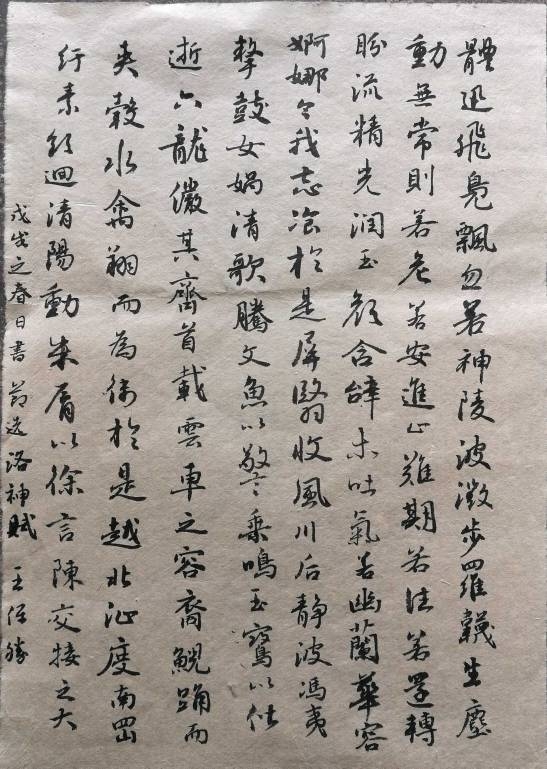 體迅飛鳧飄忽若神陵波微步羅韈生塵
動無常則若危若安進止難期若往若還轉
眄流精光潤玉顏含辭未吐氣若幽蘭華容
婀娜令我忘飡於是屏翳收風川后静波馮夷
擊鼓女媧清歌騰文魚以警乘鳴玉鸞以偕
逝六龍儼其齊首載雲車之容裔鯢踊而
夹轂水禽翔而為衛於是越北沚度南岡
紆素領迴清陽動朱脣以徐言陳交接之大
戊戌之春日書節选洛神賦 王保勝